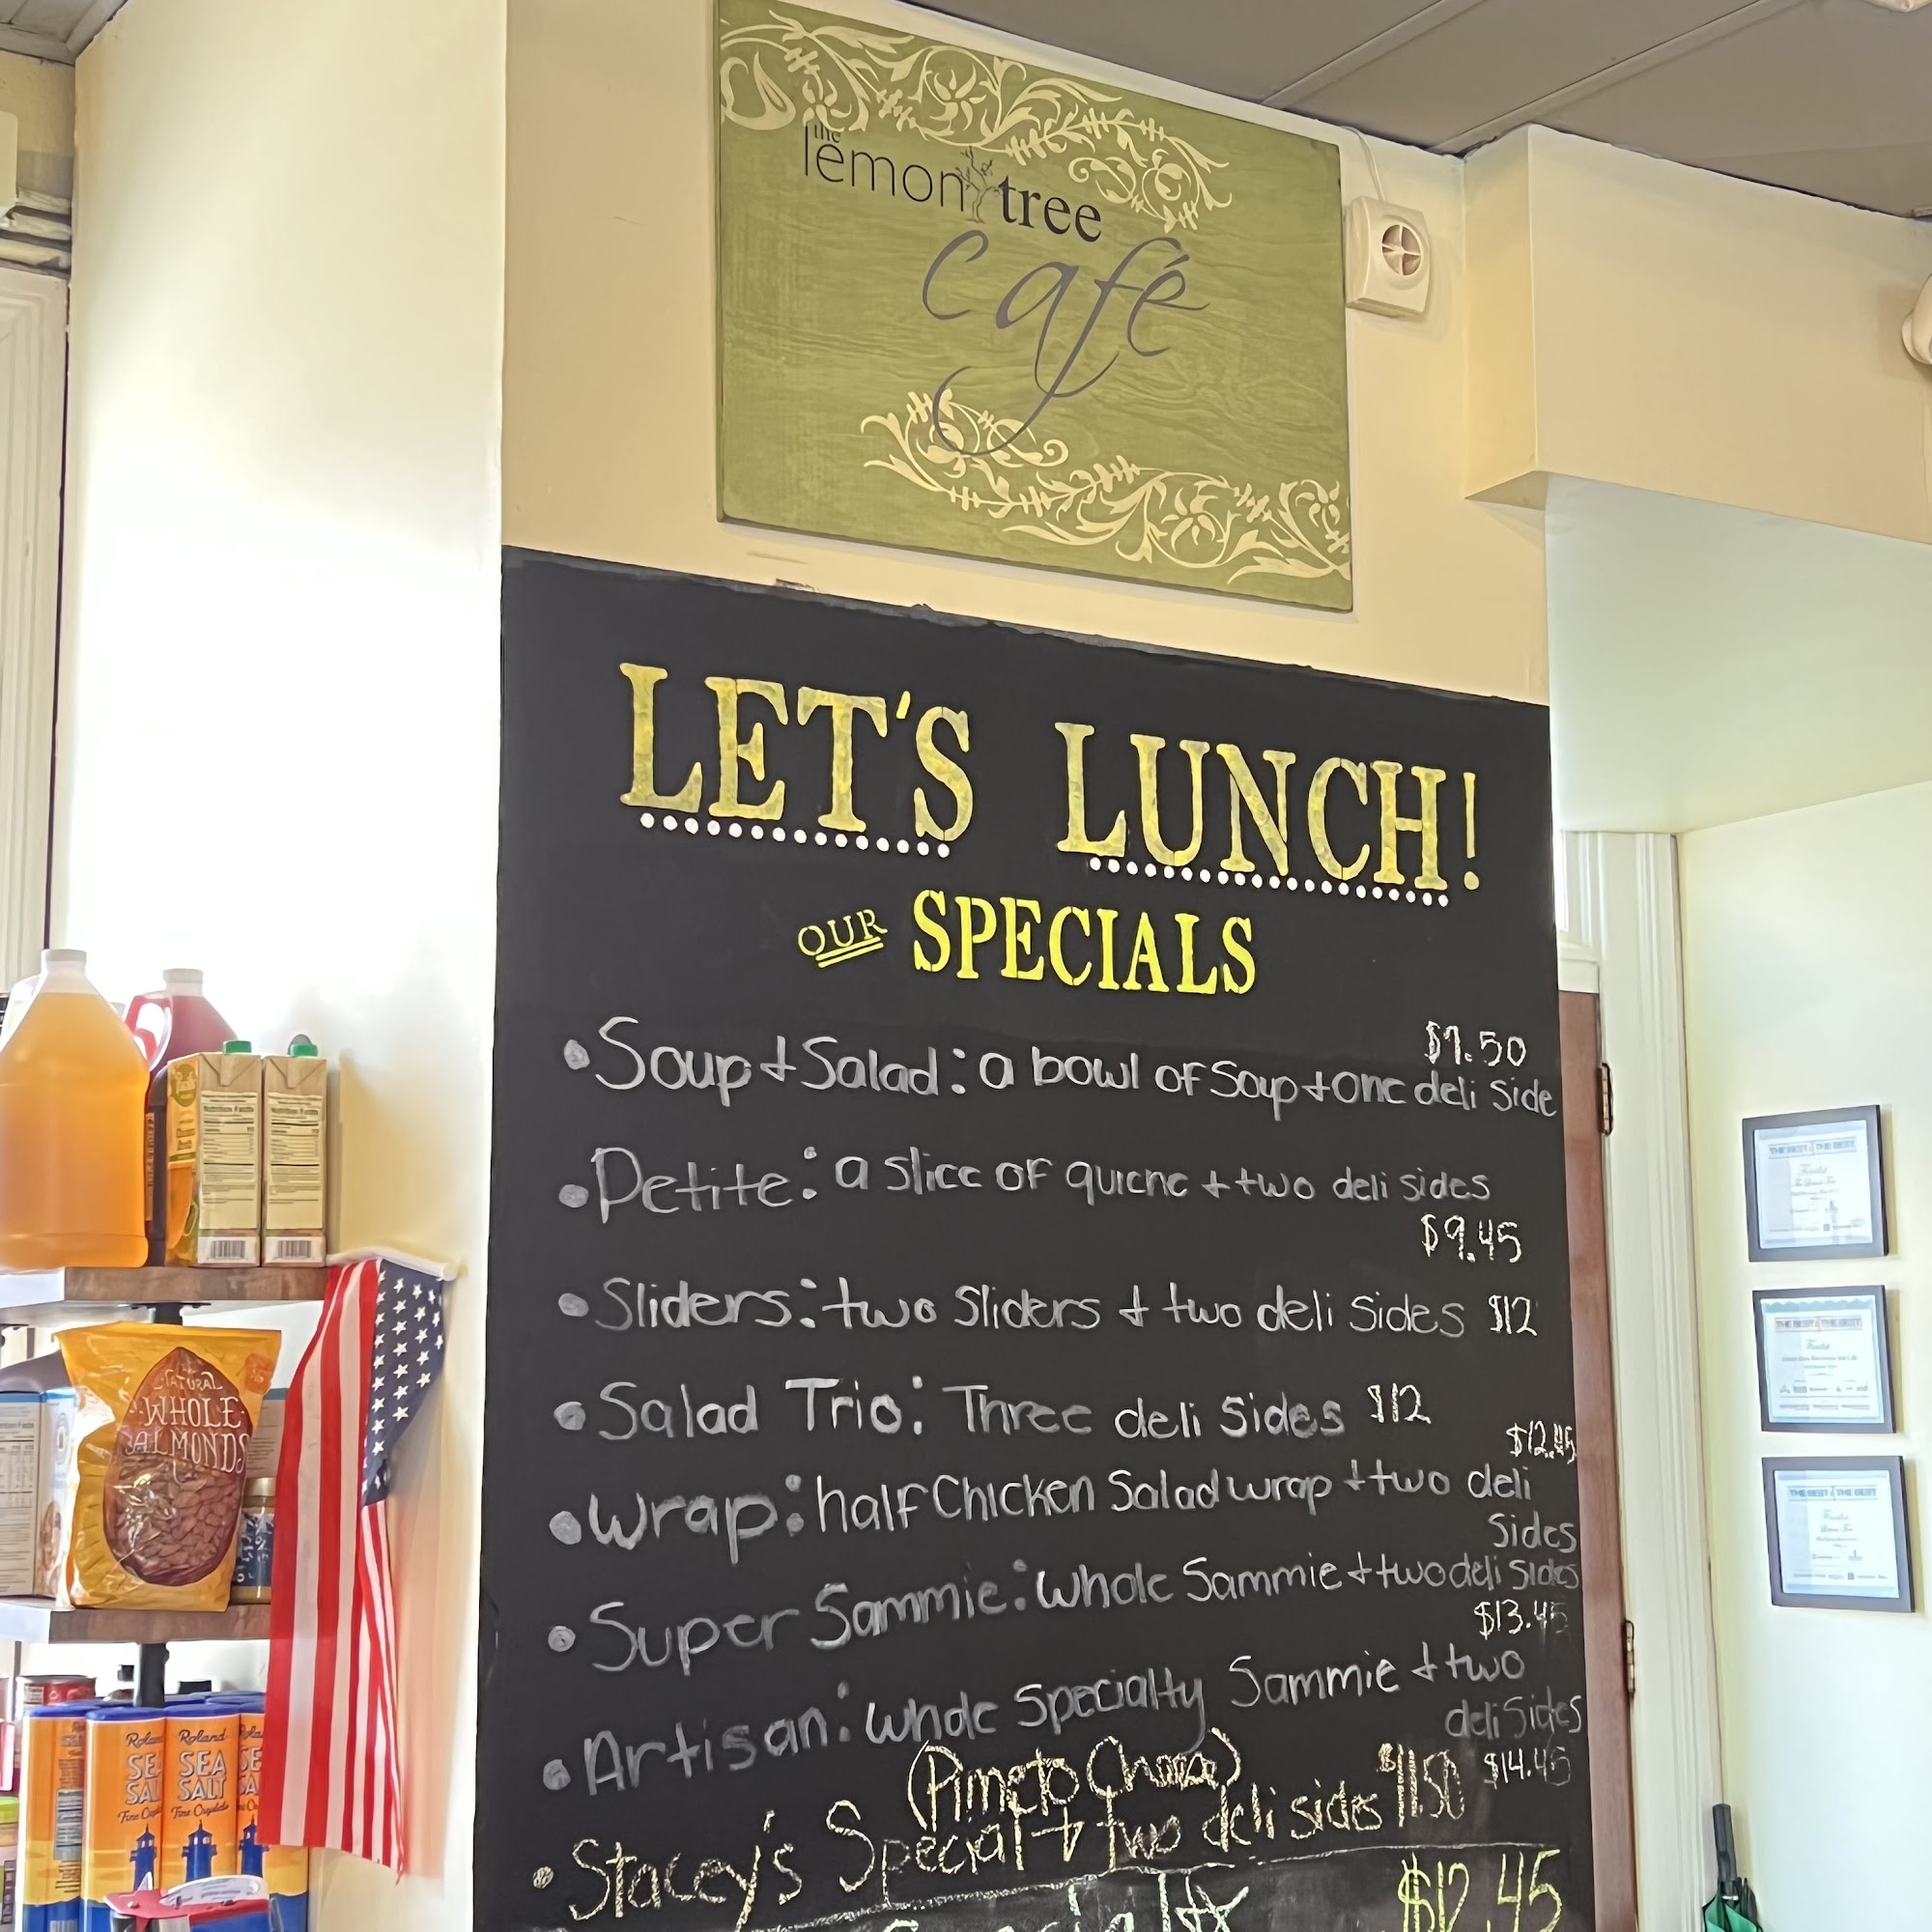 the
lemon tree
café
LET'S LUNCH!
OUR SPECIALS
$7.50
• Soup + Salad: a bowl of Soup + one deli side
• Petite: a slice of quiche + two deli sides
$9.45
• Sliders: two Sliders + two deli Sides $12
• Salad Trio: Three deli Sides $12
$12.45
• Wrap: half Chicken Salad wrap + two deli
Sides
• Super Sammie: Whole Sammie + two deli sides
$13.45
• Artisan: Whole Specialty Sammie + two
deli Sides
$14.45
(Pimeto Cheese)
• Stacey's Special + two deli sides $11.50
$12.45
NATURAL
WHOLE
ALMONDS
Roland
SEA
SALT
Fine Crystals
Roland
SEA
SALT
Fine Crystals
Nutrition Facts
Nutrition Facts
THE BEST of THE BEST
THE BEST of THE BEST
THE BEST of THE BEST